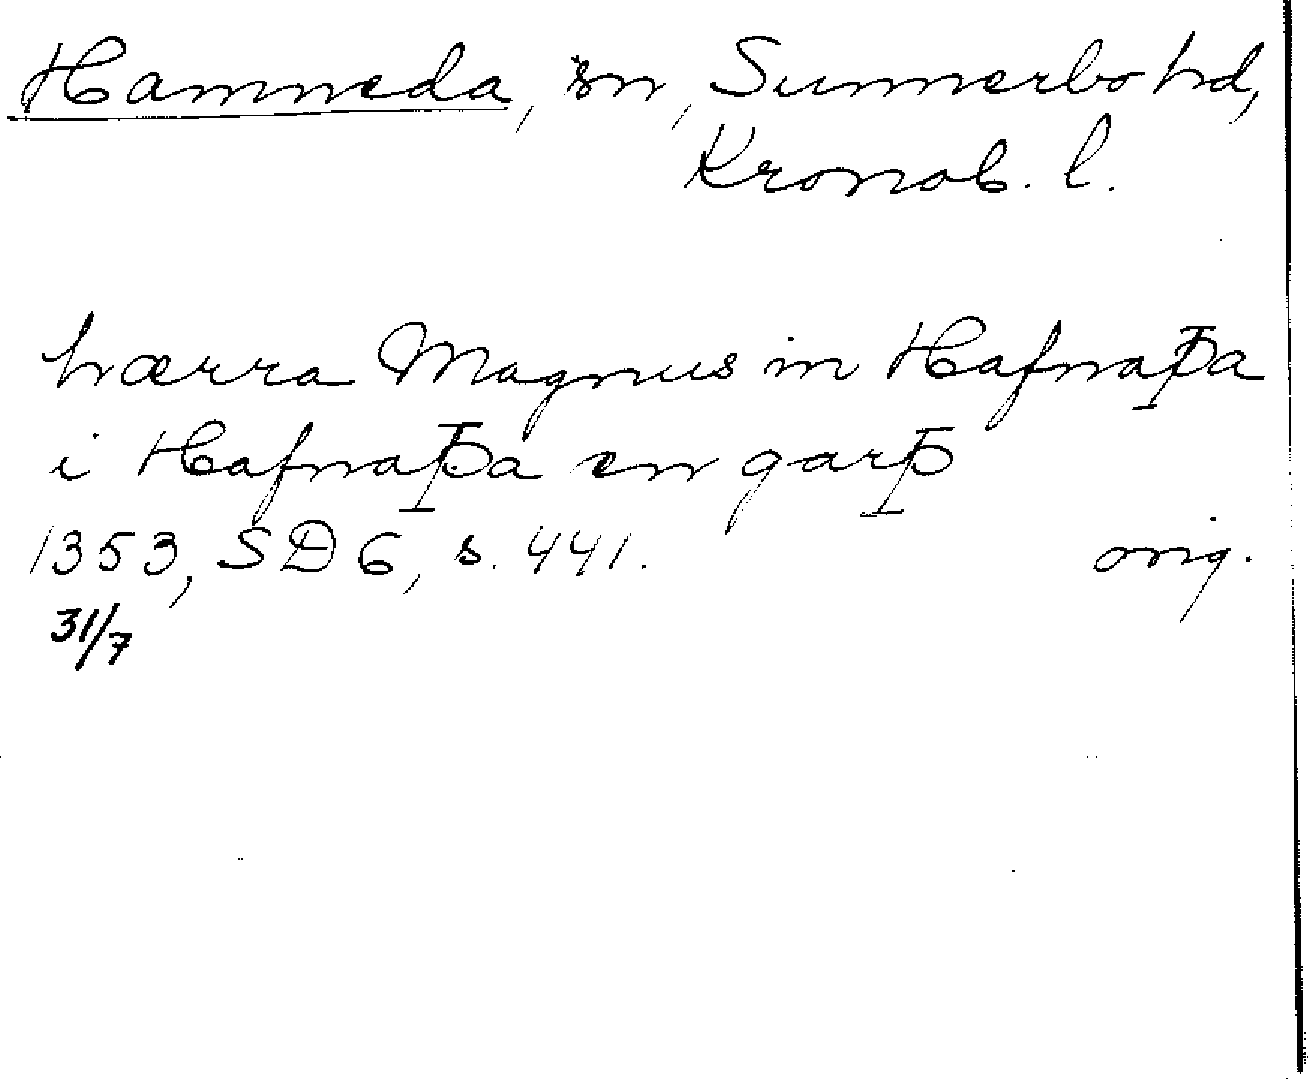 Hamneda, sn, Sunnerbo hd,
Kronob. l.
hærra Magnus in Hafnaþa
i Hafnaþa en garþ
1353, SD 6, s. 441. orig.
31/7